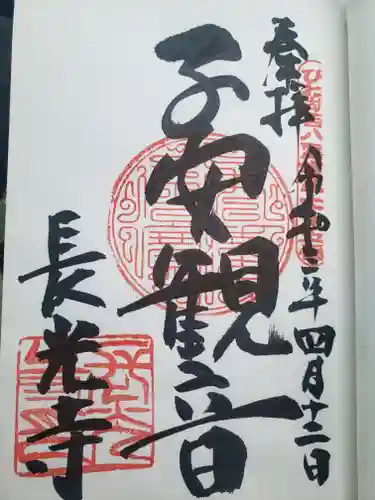 奉拝 令和三年四月十二日
子安観音
長光寺